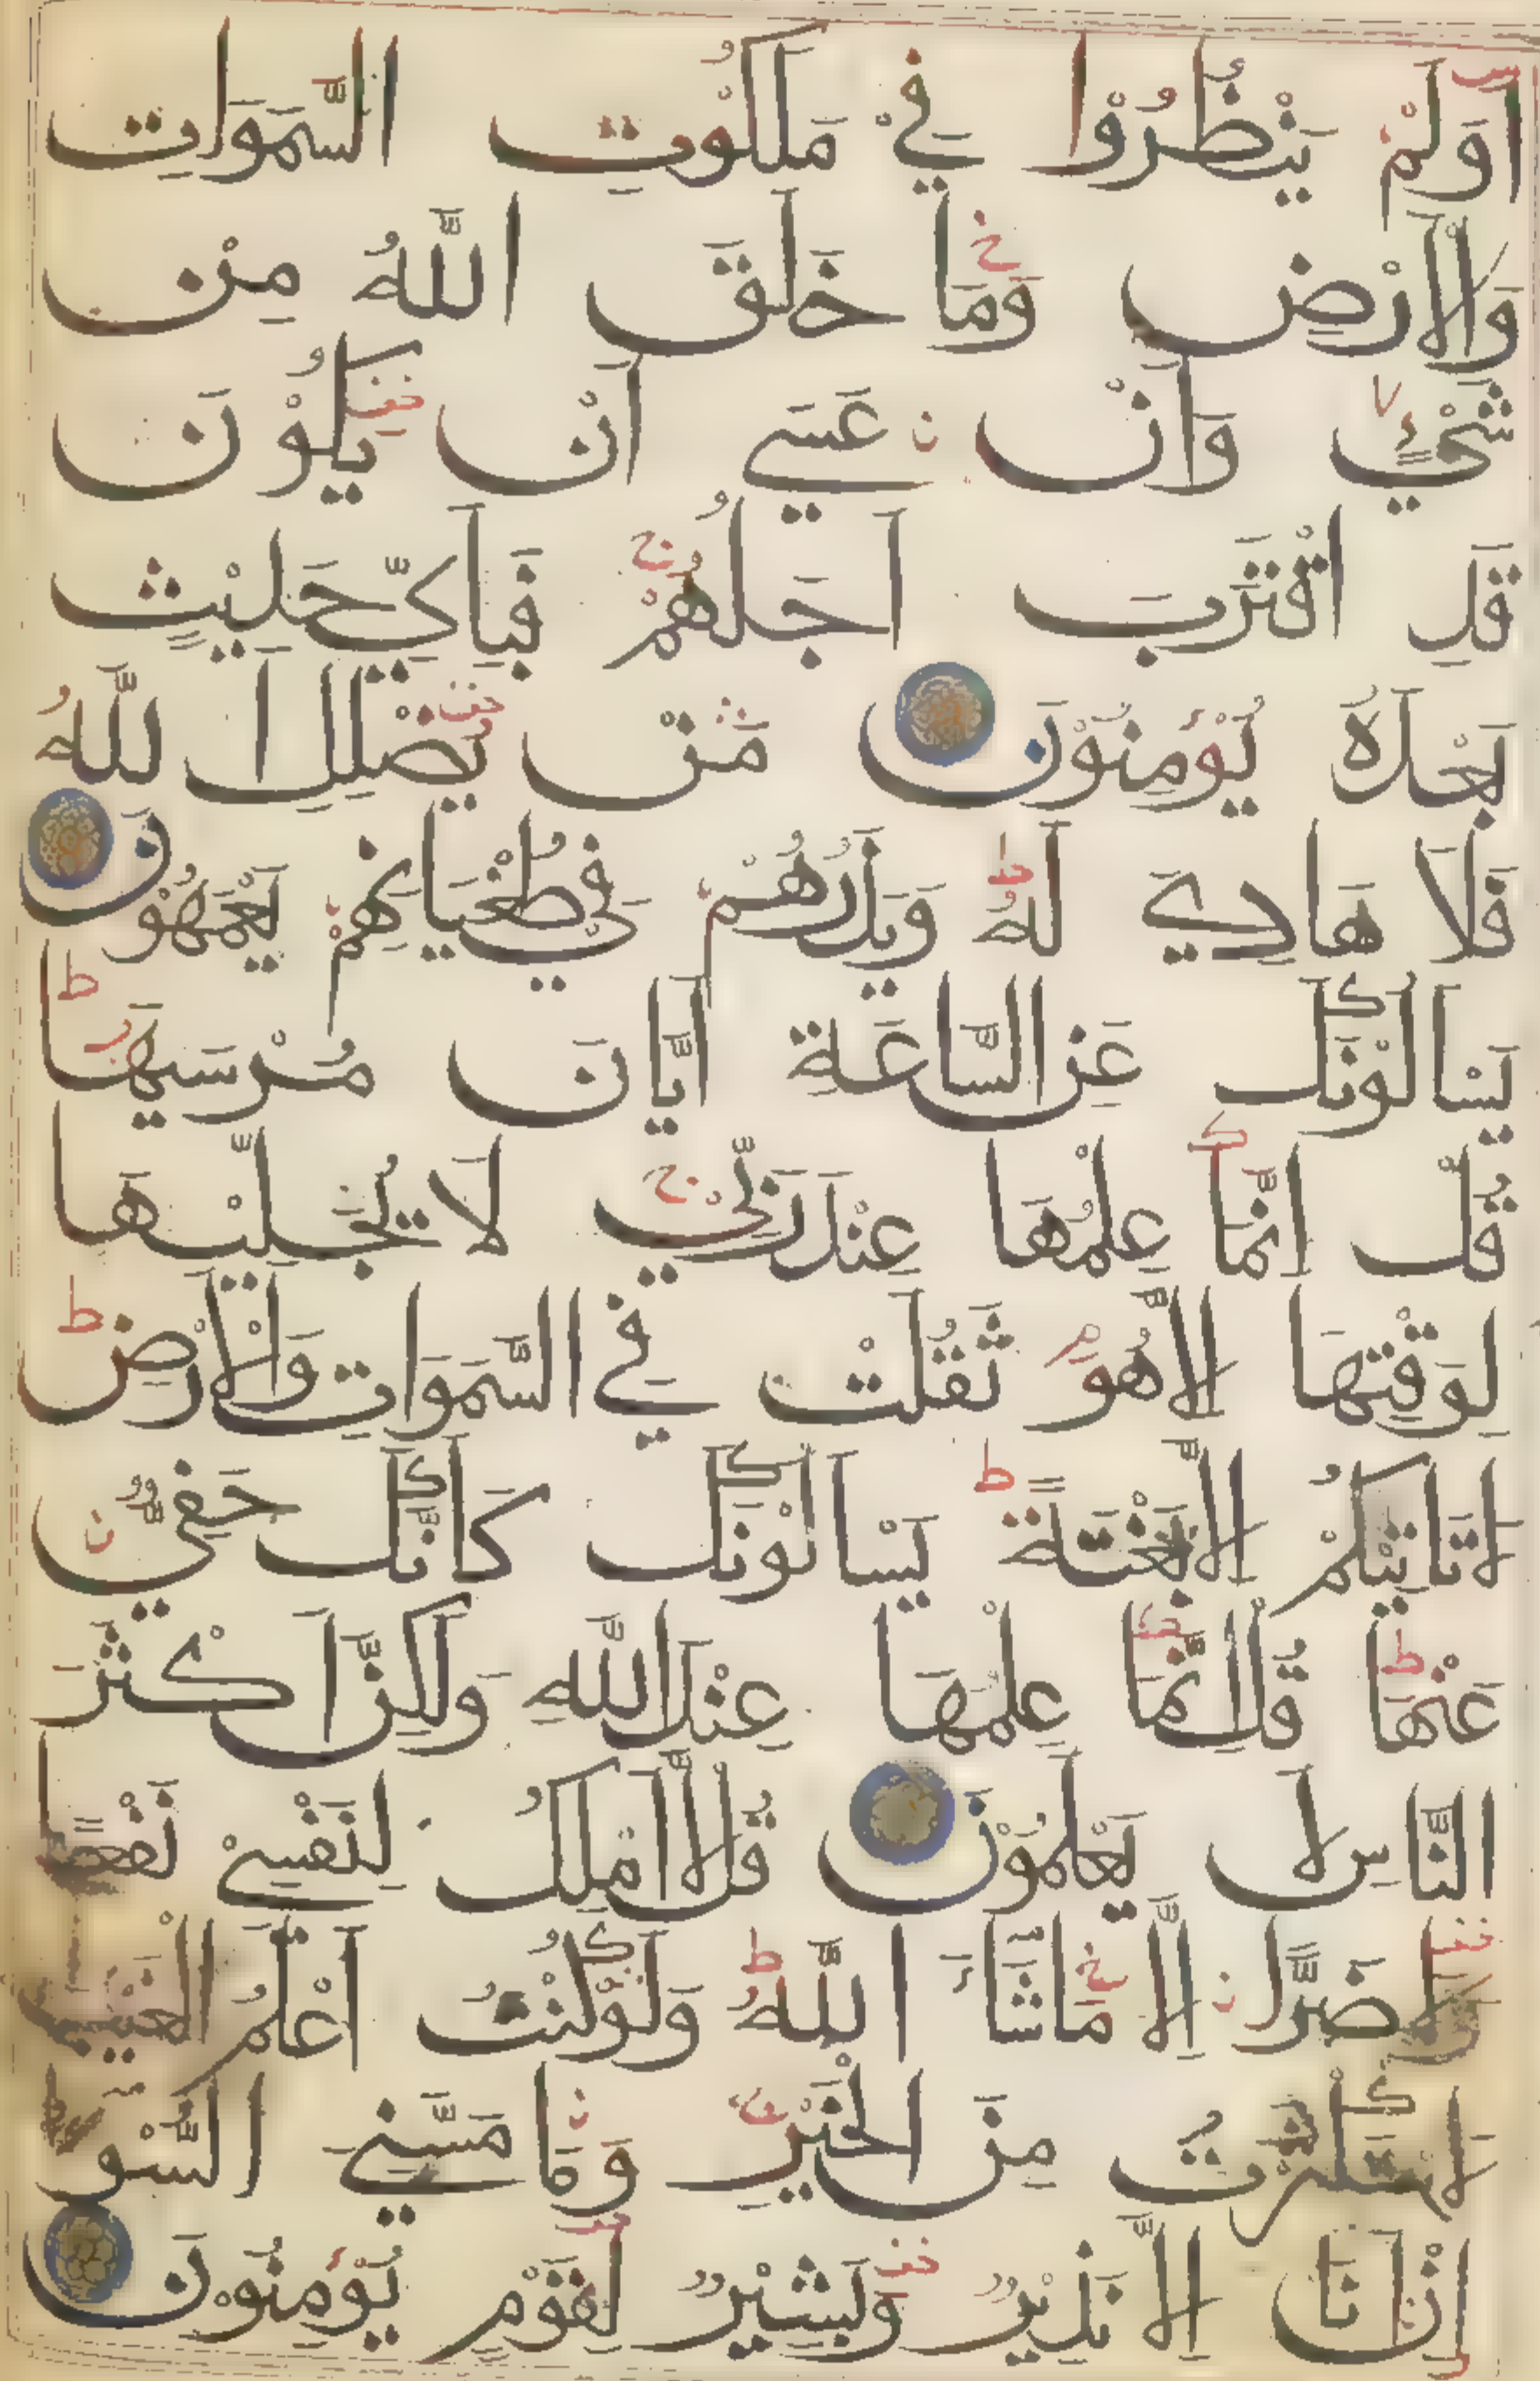 اَوَلَمْ يَنْظُرُوْا فِيْ مَلَكُوْتِ السَّمَوَاتِ
وَالْاَرْضِ وَمَا خَلَقَ اللّٰهُ مِنْ
شَيْءٍ وَاَنْ عَسَي اَنْ يَكُوْنَ
قَدِ اقْتَرَبَ اَجَلُهُمْ فَبِاَيِّ حَدِيْثٍ
بَعْدَهُ يُؤْمِنُوْنَ مَنْ يُضْلِلِ اللّٰهُ
فَلَا هَادِيَ لَهُ وَيَذَرُهُمْ فِيْ طُغْيَانِهِمْ يَعْمَهُوْنَ
يَسْاَلُوْنَكَ عَنِ السَّاعَةِ اَيَّانَ مُرْسَيهَا
قُلْ اِنَّمَا عِلْمُهَا عِنْدَ رَبِّيْ لَا يُجَلِّيْهَا
لِوَقْتِهَا اِلَّا هُوَ ثَقُلَتْ فِي السَّمَوَاتِ وَالْاَرْضِ
لَا تَاْتِيْكُمْ اِلَّا بَغْتَةً يَسْاَلُوْنَكَ كَاَنَّكَ حَفِيٌّ
عَنْهَا قُلْ اِنَّمَا عِلْمُهَا عِنْدَ اللّٰهِ وَلَكِنَّ اَكْثَرَ
النَّاسِ لَا يَعْلَمُوْنَ قُلْ لَا اَمْلِكُ لِنَفْسِيْ نَفْعًا
وَلَا ضَرًّا اِلَّا مَا شَاءَ اللّٰهُ وَلَوْ كُنْتُ اَعْلَمُ الْغَيْبَ
لَاسْتَكْثَرْتُ مِنَ الْخَيْرِ وَمَا مَسَّنِيَ السُّوْ
اِنْ اَنَا اِلَّا نَذِيْرٌ وَبَشِيْرٌ لِقَوْمٍ يُؤْمِنُوْنَ